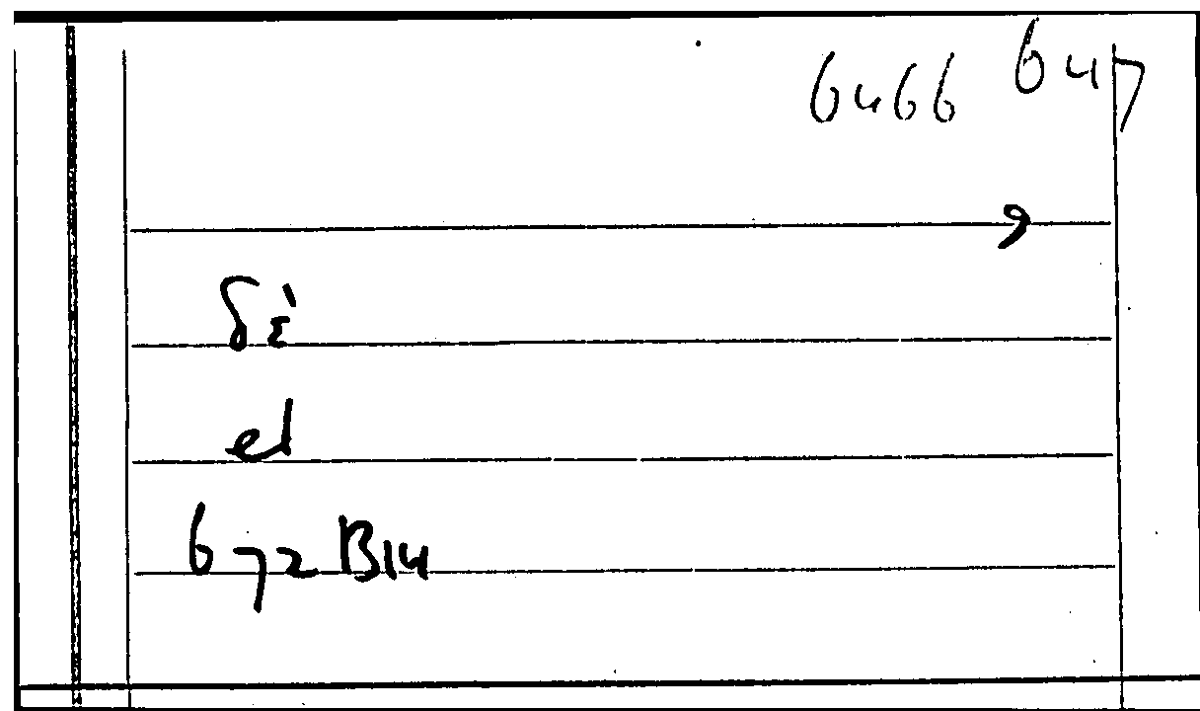 6466 647
9
δὲ
et
672 B14